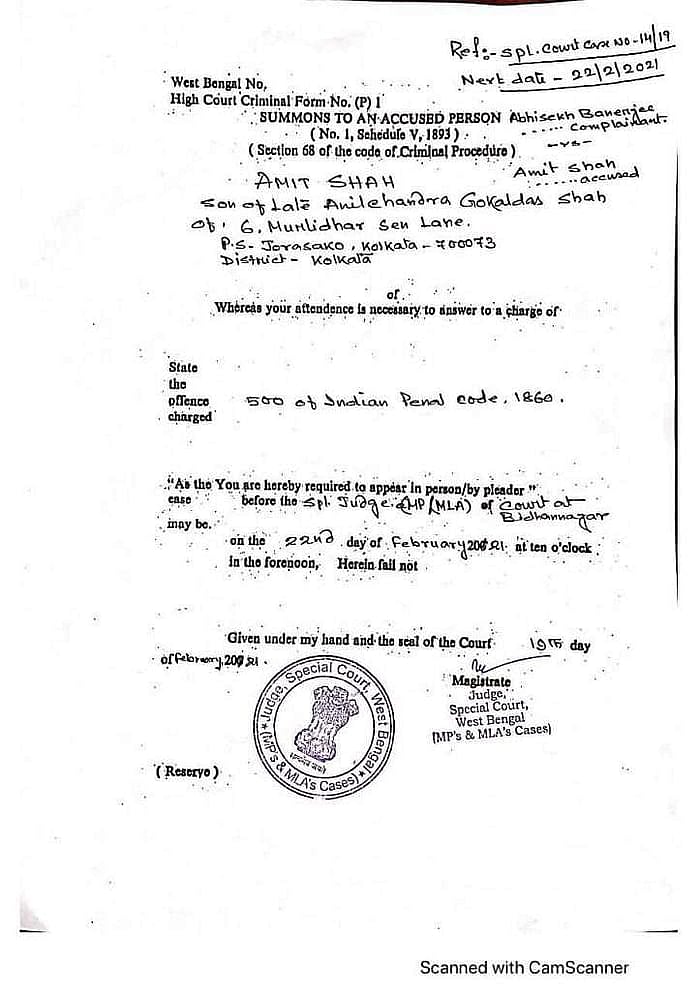 Ref:- Spl. Court Case No-14/19
Next date - 22/2/2021
West Bengal No,
High Court Criminal Form No. (P) 1
SUMMONS TO AN ACCUSED PERSON Abhisekh Banerjee
( No. 1, Schedule V, 1893 ) ...... Complainant.
-vs-
( Section 68 of the code of Criminal Procedure )
Amit Shah
...... accused
AMIT SHAH
Son of Late Anilchandra Gokaldas Shah
of 6, Murlidhar Sen Lane.
P.S- Jorasako, Kolkata - 700073
District - Kolkata
of
Whereas your attendence is necessary to answer to a charge of
State
the
offence 500 of Indian Penal Code, 1860.
charged
"As the You are hereby required to appear in person/by pleader "
case before the Spl. Judge (MLA) of Court at
Bidhannagar
may be.
on the 22nd day of February 2021 at ten o'clock
In the forenoon, Herein fail not
Given under my hand and the seal of the Court 19th day
of February, 2021.
Magistrate
Judge,
Special Court,
West Bengal
(MP's & MLA's Cases)
Judge, Special Court, West Bengal
(MP's & MLA's Cases)
( Reserve )
Scanned with CamScanner